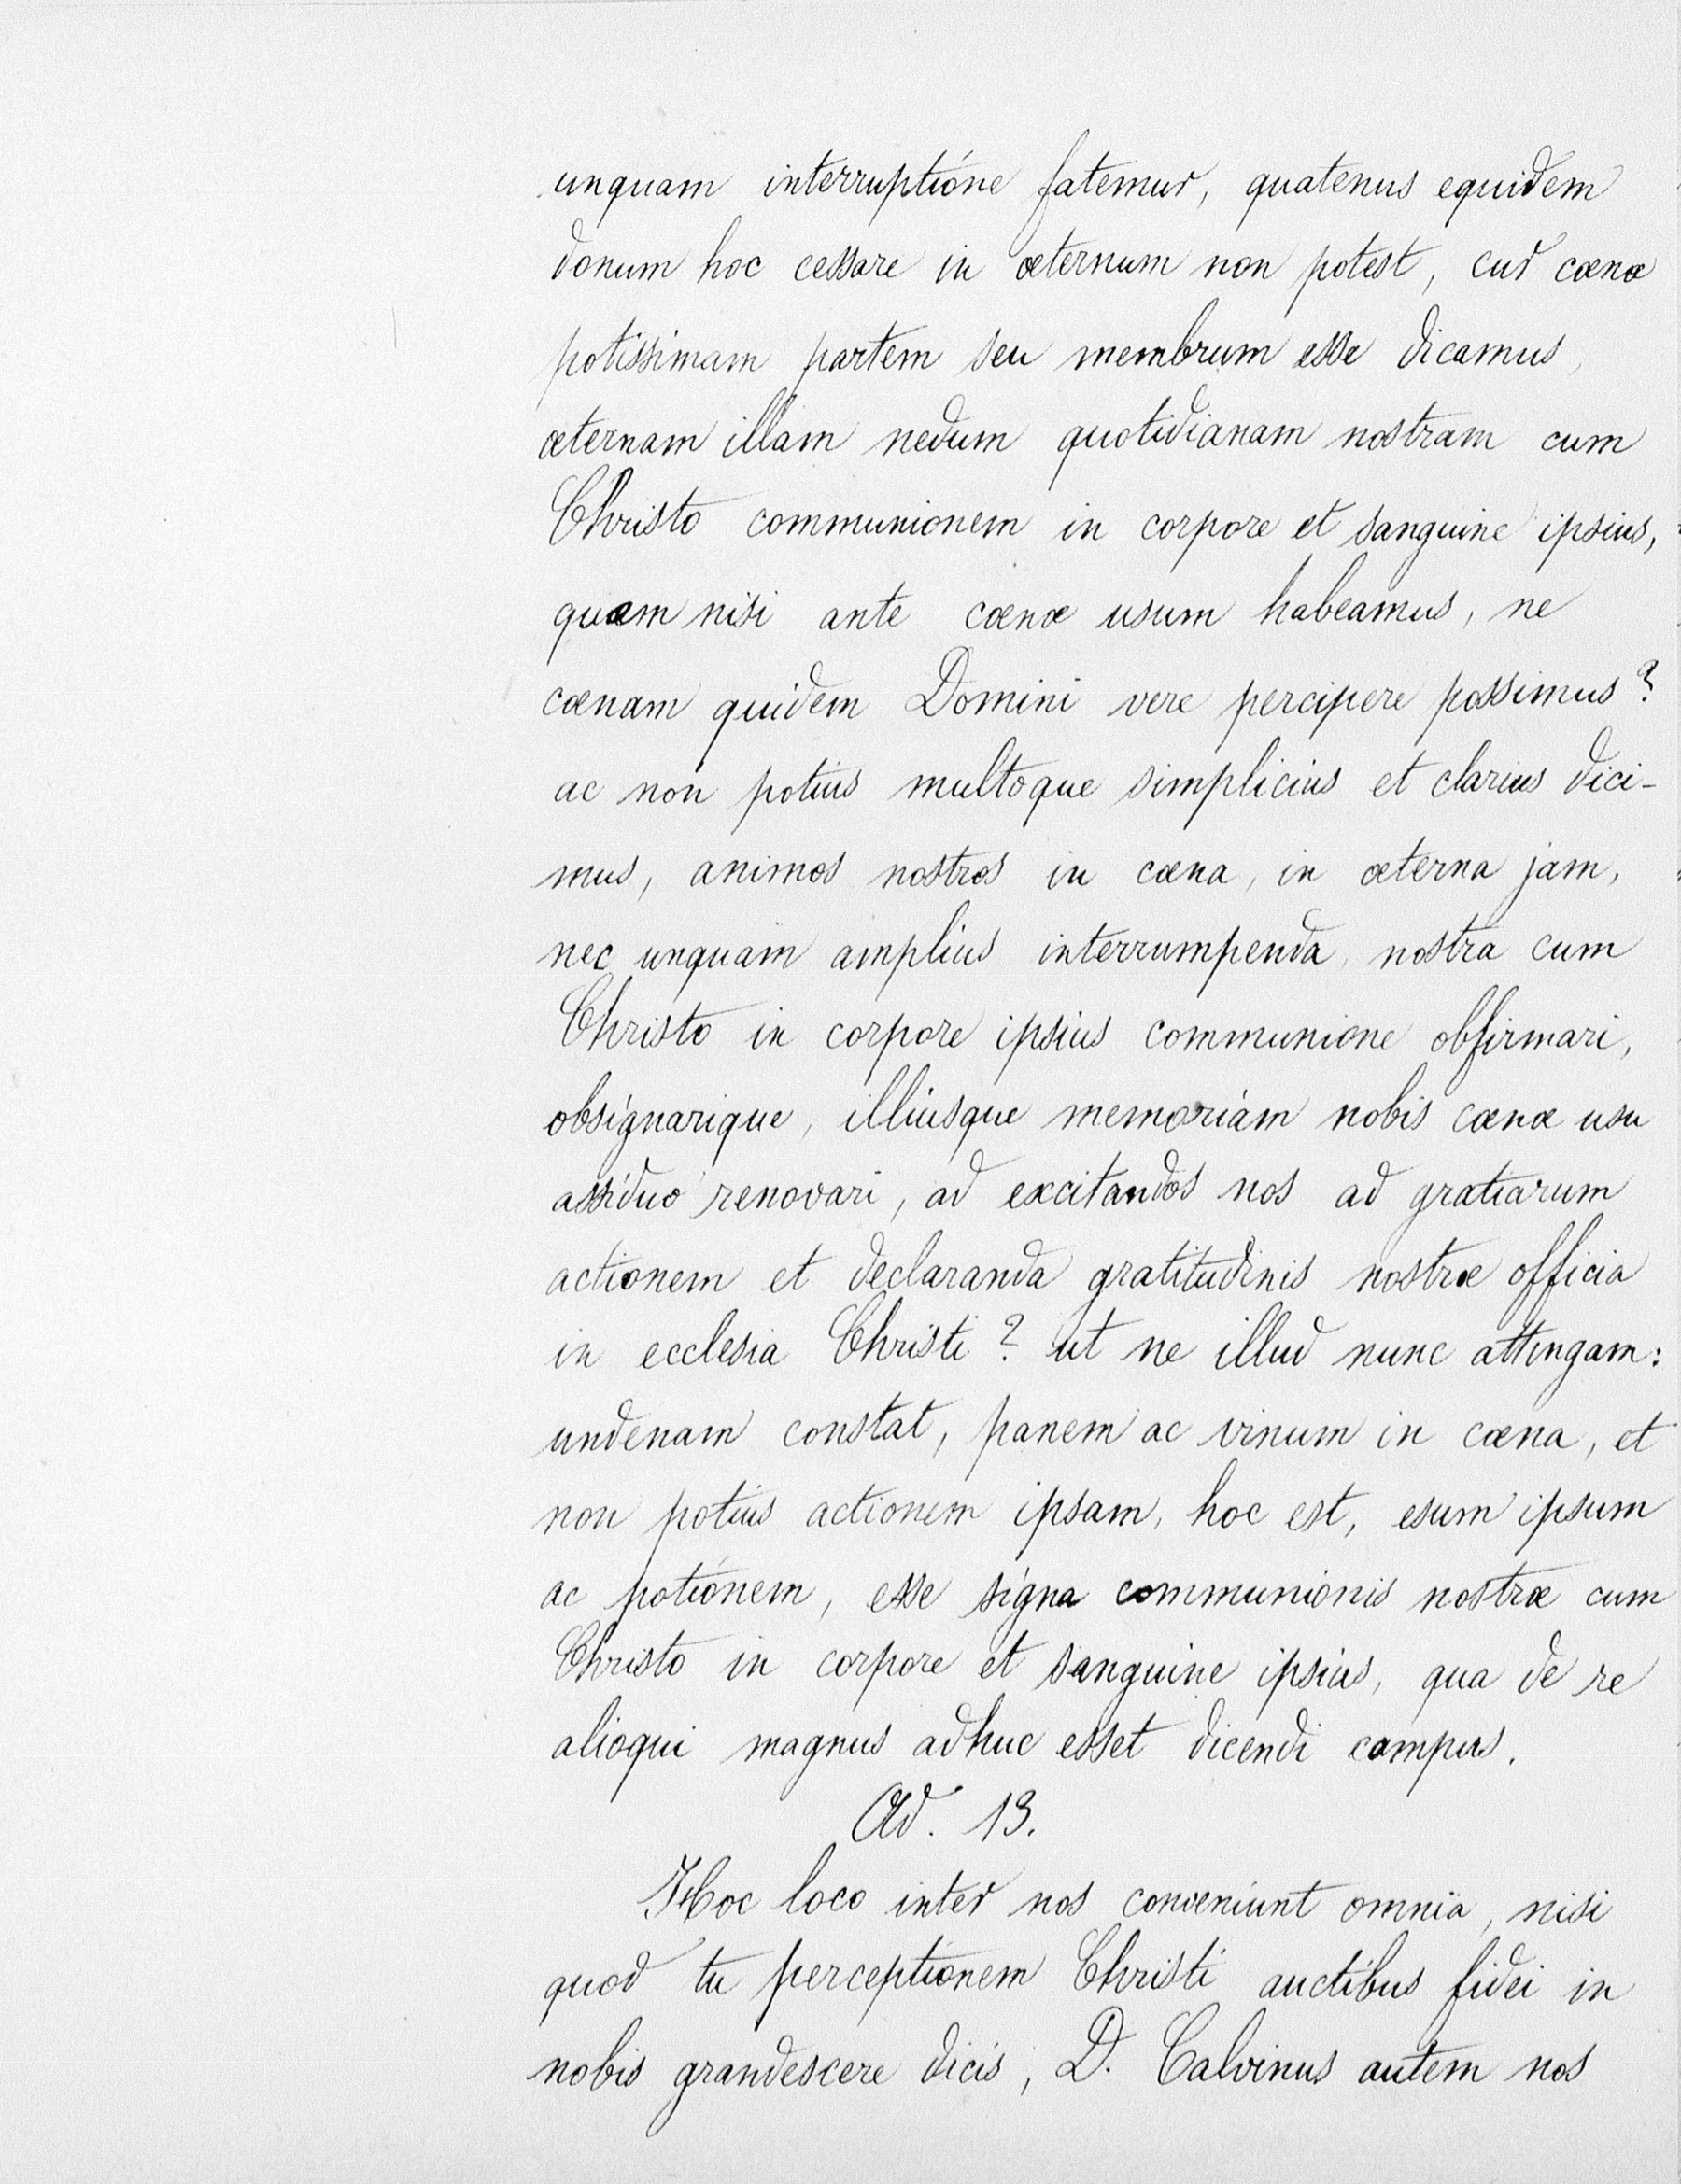 unquam interruptione fatemur, quatenus equidem
donum hoc cessare in æternum non potest, cur cœnæ
potissimam partem seu membrum esse dicamus,
æternam illam nedum quotidianam nostram cum
Christo communionem in corpore et sanguine ipsius,
quam nisi ante cœnæ usum habeamus, ne
cœnam quidem Domini vere percipere possimus?
ac non potius multoque simplicius et clarius dici-
mus, animos nostros in cœna, in æterna jam,
nec unquam amplius interrumpenda, nostra cum
Christo in corpore ipsius communione obfirmari,
obsignarique, illiusque memoriam nobis cœnæ usu
assiduo renovari, ad excitandos nos ad gratiarum
actionem et declaranda gratitudinis nostræ officia
in ecclesia Christi? ut ne illud nunc attingam:
undenam constat, panem ac vinum in cœna, et
non potius actionem ipsam, hoc est, esum ipsum
ac potionem, esse signa communionis nostræ cum
Christo in corpore et sanguine ipsius, qua de re
alioqui magnus adhuc esset dicendi campus.
Ad. 13.
Hoc loco inter nos conveniunt omnia, nisi
quod tu perceptionem Christi auctibus fidei in
nobis grandescere dicis, D. Calvinus autem nos